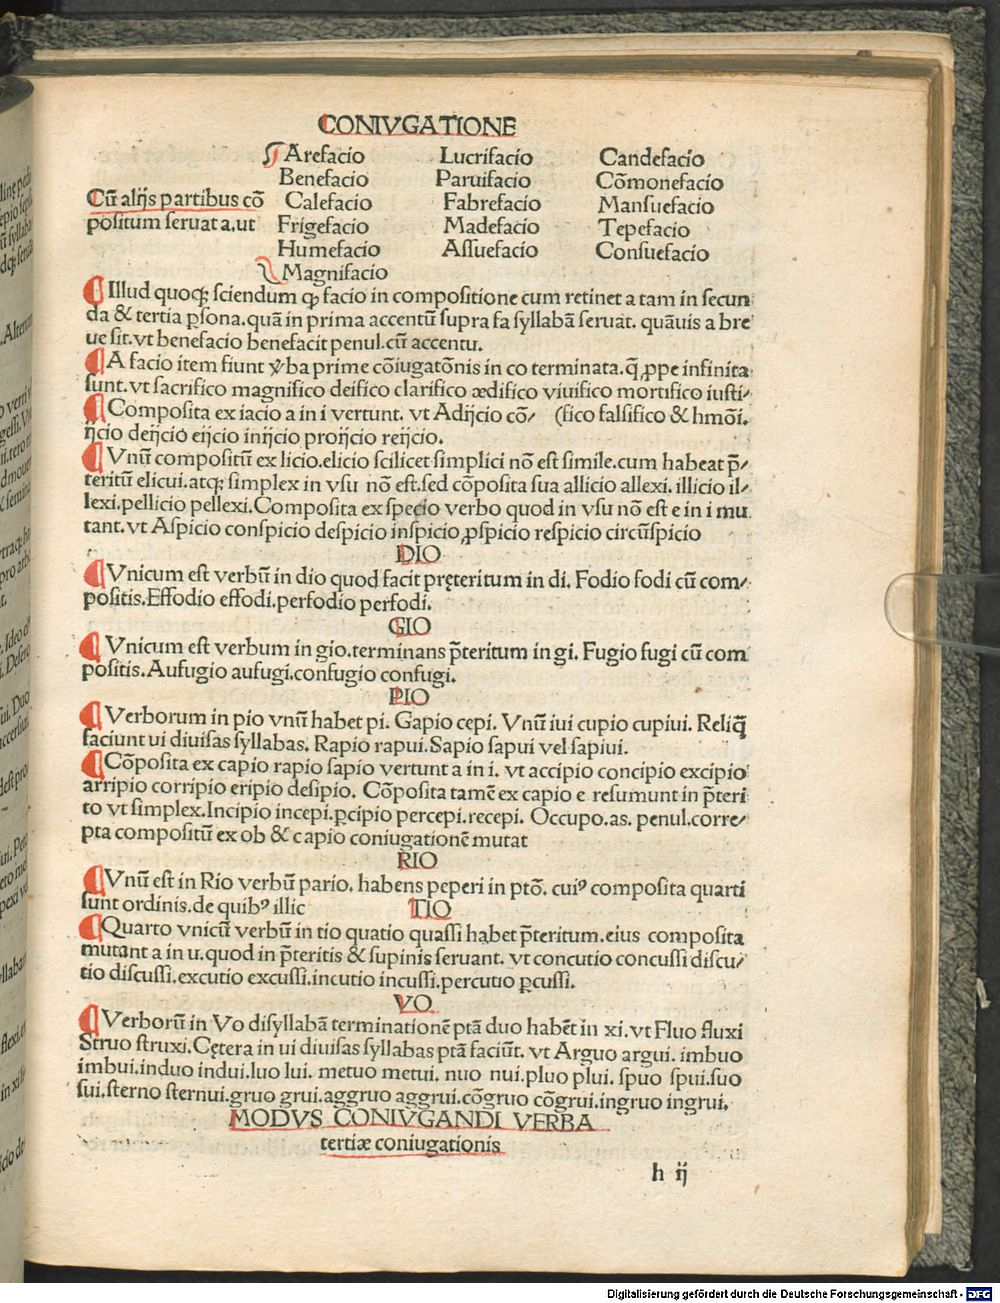 CONIVGATIONE
Arefacio Lucrifacio Candefacio
Benefacio Paruifacio Cōmonefacio
Cū alijs partibus cō Calefacio Fabrefacio Mansuefacio
positum seruat a.ut Frigefacio Madefacio Tepefacio
Humefacio Assuefacio Consuefacio
Magnifacio
¶ Illud quoqꝫ sciendum ꝙ facio in compositione cum retinet a tam in secun
da & tertia ꝑsona.quā in prima accentū supra fa syllabā seruat. quāuis a bre
ue sit.vt benefacio benefacit penul.cū accentu.
¶ A facio item fiunt v̄ba prime cōiugatōnis in co terminata.q̄ ꝓpe infinita
sunt.vt sacrifico magnifico deifico clarifico ædifico viuifico mortifico iusti⸗
¶ Composita ex iacio a in i vertunt. vt Adijcio cō⸗ (fico falsifico & hmōi.
ijcio deijcio eijcio inijcio proijcio reijcio.
¶ Vnū compositū ex licio.elicio scilicet simplici nō est simile.cum habeat p̄⸗
teritū elicui.atqꝫ simplex in vsu nō est.sed cōposita sua allicio allexi. illicio il⸗
lexi.pellicio pellexi.Composita ex specio verbo quod in vsu nō est e in i mu
tant. vt Aspicio conspicio despicio inspicio ꝓspicio respicio circūspicio
DIO
¶ Vnicum est verbū in dio quod facit pręteritum in di. Fodio fodi cū com⸗
positis.Effodio effodi.perfodio perfodi.
GIO
¶ Vnicum est verbum in gio.terminans p̄teritum in gi. Fugio fugi cū com
positis.Aufugio aufugi.confugio confugi.
PIO
¶ Verborum in pio vnū habet pi. Gapio cepi. Vnū iui cupio cupiui. Reliq̄
faciunt ui diuisas syllabas. Rapio rapui.Sapio sapui vel sapiui.
¶ Cōposita ex capio rapio sapio vertunt a in i. vt accipio concipio excipio
arripio corripio eripio desipio. Cōposita tamē ex capio e resumunt in p̄teri
to vt simplex.Incipio incepi.ꝑcipio percepi.recepi. Occupo.as. penul.corre⸗
pta compositū ex ob & capio coniugationē mutat
RIO
¶ Vnū est in Rio verbū pario. habens peperi in ptō. cuiꝰ composita quarti
sunt ordinis.de quibꝰ illic TIO
¶ Quarto vnicū verbū in tio quatio quassi habet p̄teritum.eius composita
mutant a in u.quod in p̄teritis & supinis seruant. vt concutio concussi discu⸗
tio discussi.excutio excussi.incutio incussi.percutio ꝑcussi.
VO
¶ Verborū in Vo disyllabā terminationē ptā duo habēt in xi.vt Fluo fluxi
Struo struxi.Cętera in ui diuisas syllabas ptā faciūt. vt Arguo argui. imbuo
imbui.induo indui.luo lui. metuo metui. nuo nui.pluo plui. spuo spui.suo
sui.sterno sternui.gruo grui.aggruo aggrui.cōgruo cōgrui.ingruo ingrui.
MODVS CONIVGANDI VERBA
tertiæ coniugationis
h ij
Digitalisierung gefördert durch die Deutsche Forschungsgemeinschaft - DFG